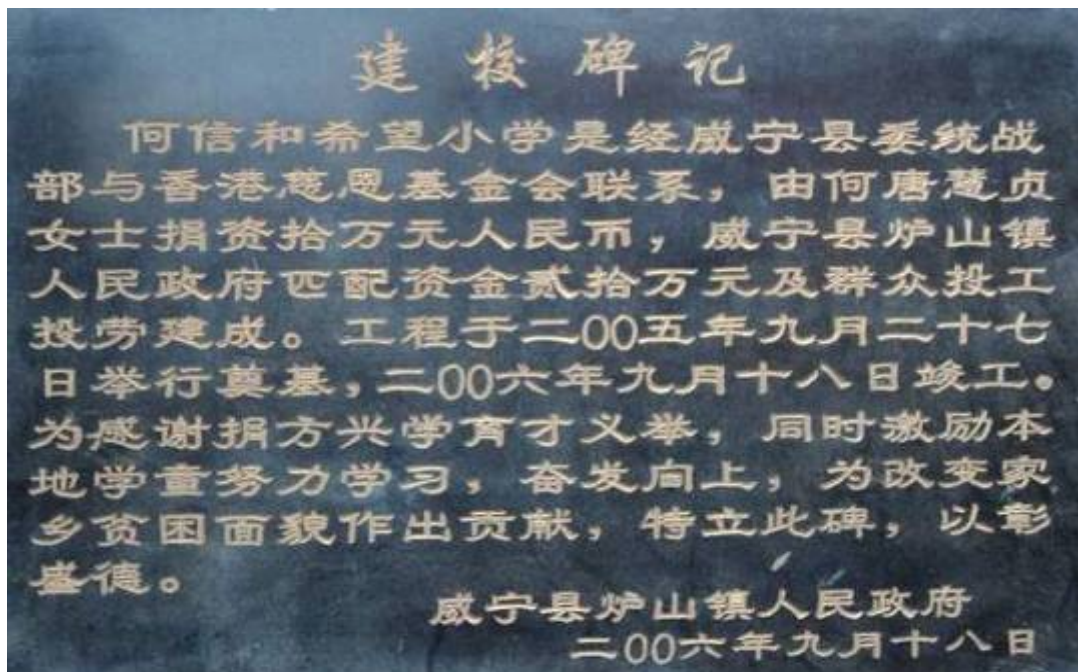 建校碑记
何信和希望小学是经威宁县委统战
部与香港慈恩基金会联系，由何唐慧贞
女士捐资拾万元人民币，威宁县炉山镇
人民政府匹配资金贰拾万元及群众投工
投劳建成。工程于二00五年九月二十七
日举行奠基，二00六年九月十八日竣工。
为感谢捐方兴学育才义举，同时激励本
地学童努力学习，奋发向上，为改变家
乡贫困面貌作出贡献，特立此碑，以彰
盛德。
威宁县炉山镇人民政府
二00六年九月十八日